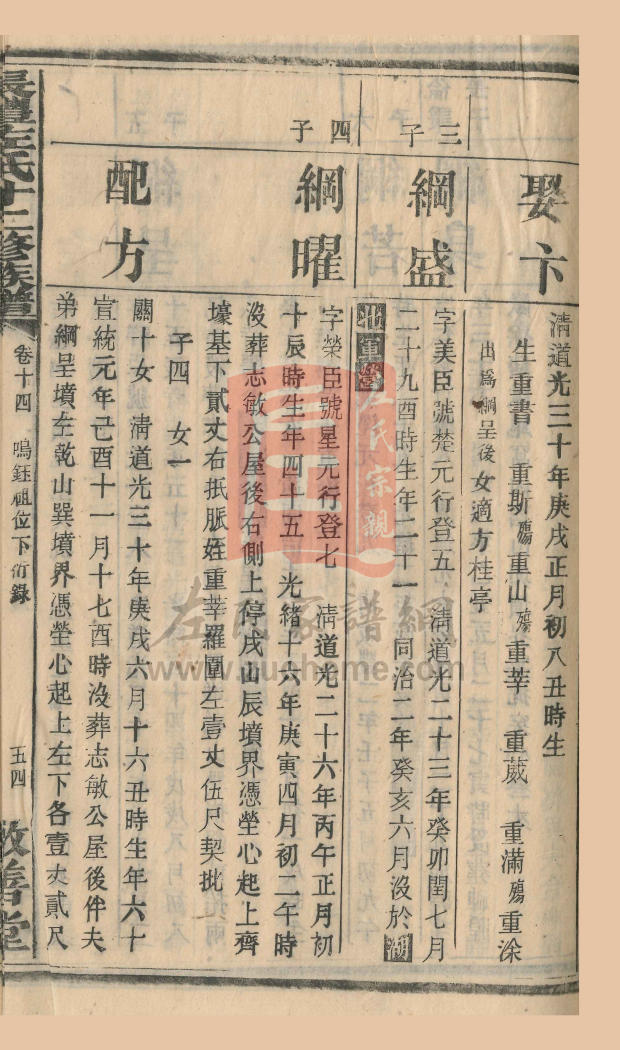 娶卞
清道光三十年庚戌正月初八丑時生
生重書 重斯殤重山殤重莘 重葳 重滿殤重深
出爲綱呈後女適方桂亭
三子
綱盛
字美臣號楚元行登五 清道光二十三年癸卯閏七月
二十九酉時生年二十一 同治二年癸亥六月沒於湖
北軍營
四子
綱曜
字榮臣號星元行登七 清道光二十六年丙午正月初
十辰時生年四十五 光緒十六年庚寅四月初二午時
沒葬志敏公屋後右側上停戌山辰墳界憑塋心起上齊
壕基下貳丈右抵脈姪重莘羅圍左壹丈伍尺契批
子四 女一
配方
關十女 清道光三十年庚戌六月十六丑時生年六十
宣統元年己酉十一月十七酉時沒葬志敏公屋後伴夫
弟綱呈墳左乾山巽墳界憑塋心起上左下各壹丈貳尺
長豐左氏十二修族譜
卷十四 鳴鈺祖位下衍錄
五四
敦善堂
左氏宗親
左氏家譜網